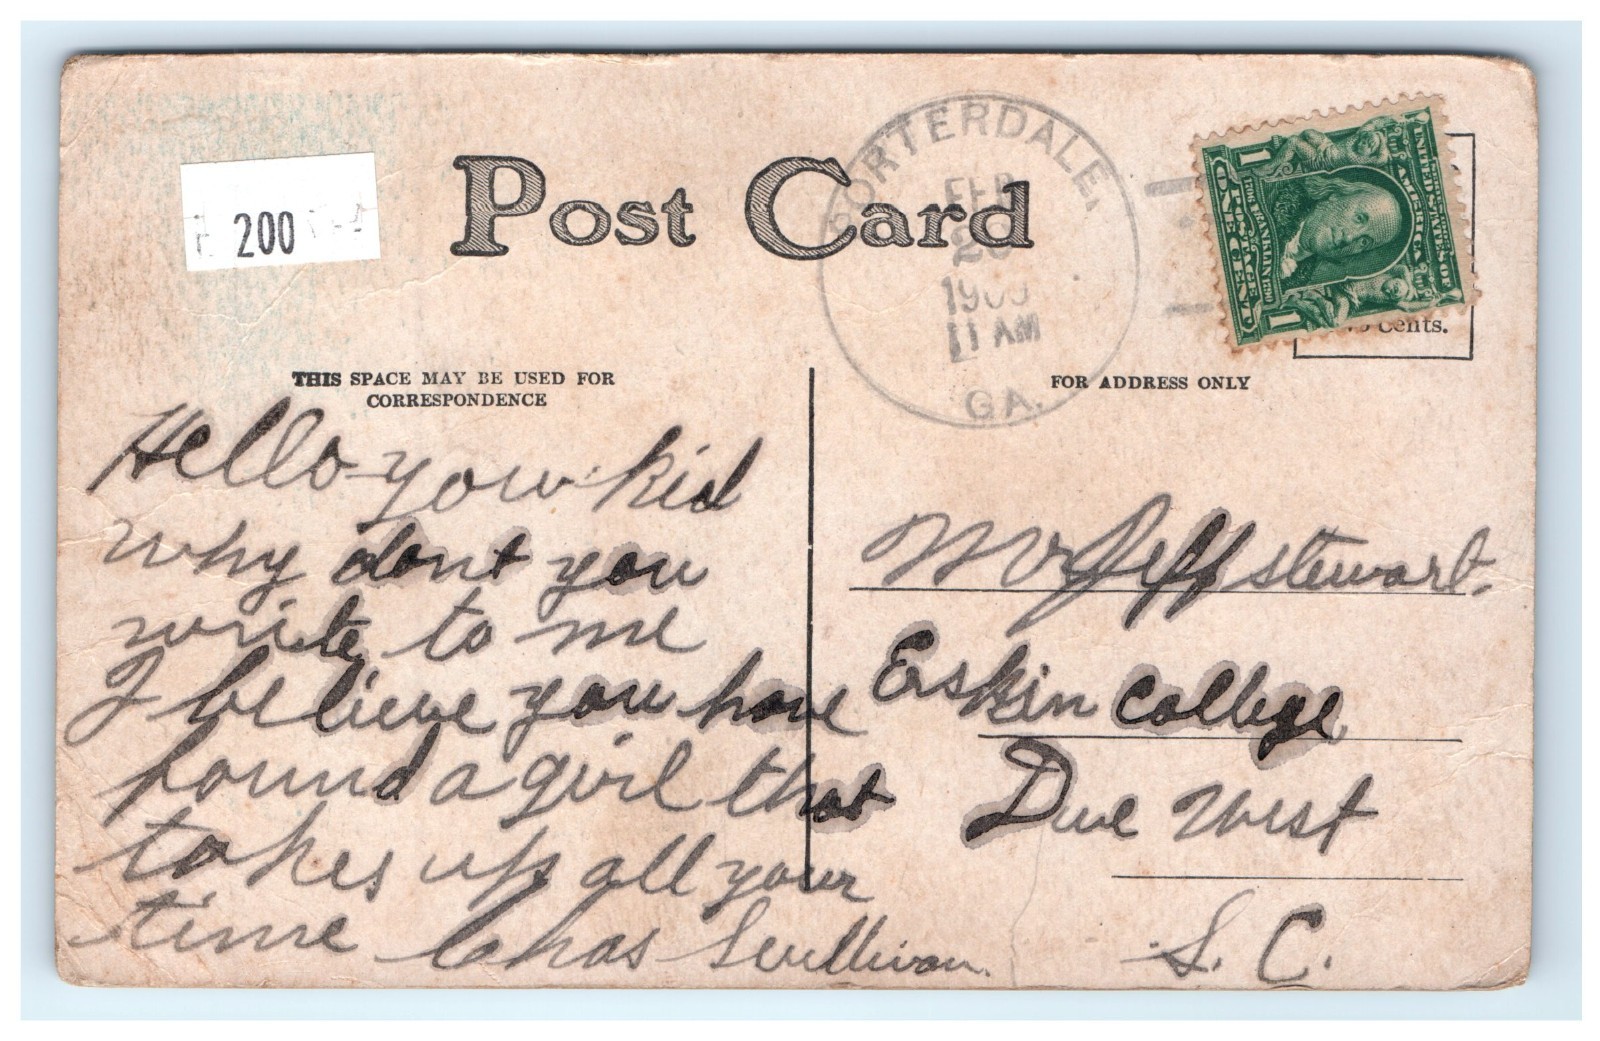 200
Post Card
PORTERDALE,
FEB
1909
11 AM
GA.
UNITED STATES OF
AMERICA
FRANKLIN
POSTAGE
ONE CENT
1 1
Cents.
THIS SPACE MAY BE USED FOR
CORRESPONDENCE
Hello you kid
why dont you
write to me
I believe you have
found a girl that
takes up all your
time Chas Sullivan.
FOR ADDRESS ONLY
Mr Jeff stewart.
Erskin College
Due West
S. C.